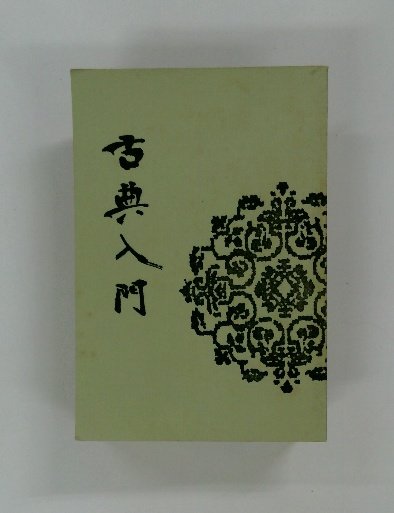 古典入門